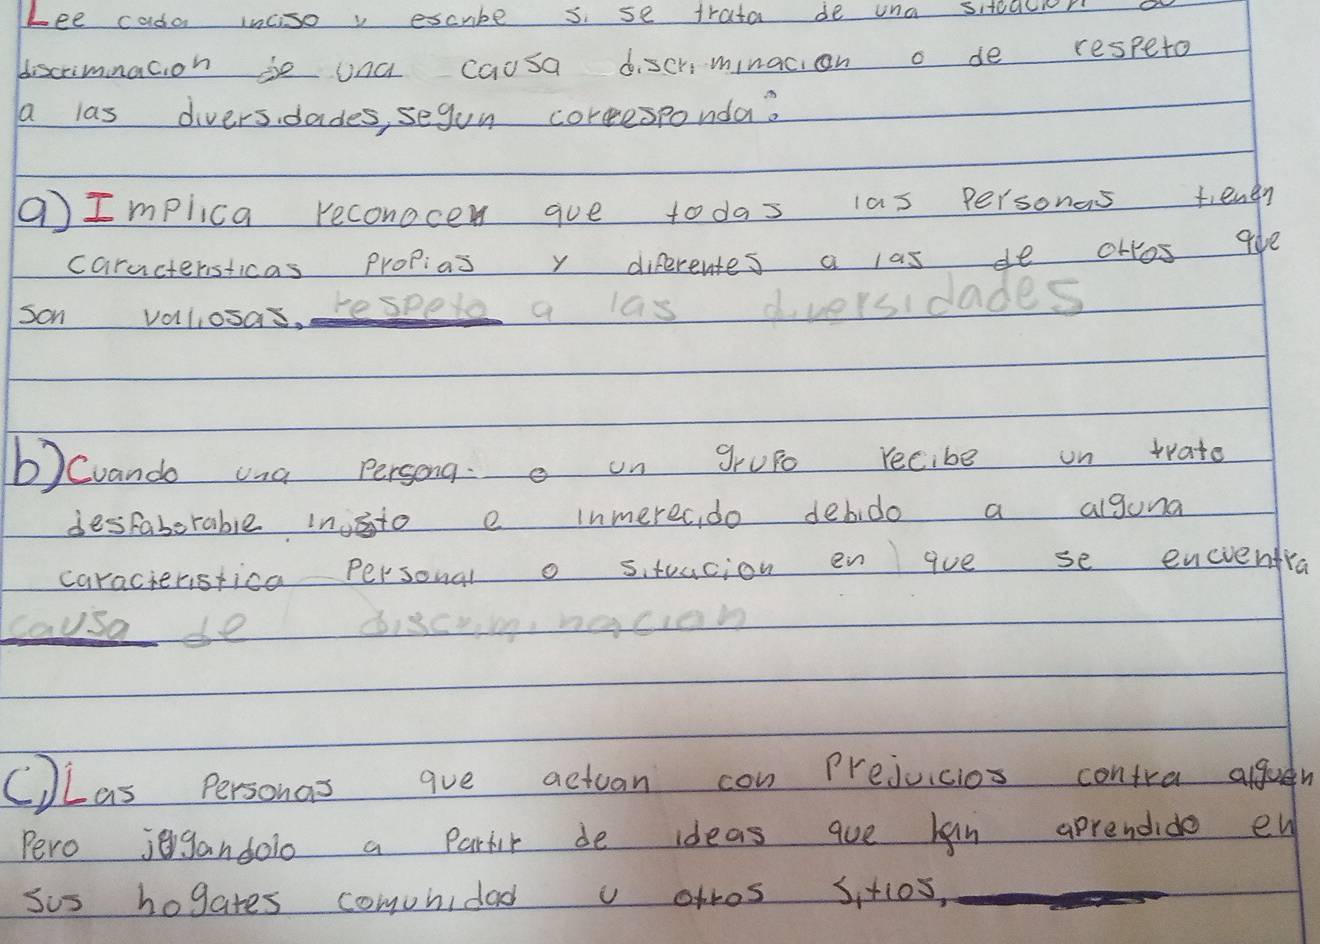 Lee cada inciso y escribe si se trata de una situación de
discriminacion de una causa discriminacion o de respeto
a las diversidades, segun corresponda:
a) Implica reconocer que todas las Personas tienen
caracteristicas propias y diferentes a las de otros que
son valiosas. respeto a las diversidades
b) Cuando una Persona o un grupo recibe un trato
desfaborable injusto e inmerecido debido a alguna
caracteristica Personal o situacion en que se encuentra
causa de discriminacion
C) Las Personas que actuan con Prejuicios contra alguen
Pero jugandolo a Partir de ideas que han aprendido en
sus hogares comunidad u otros sitios,